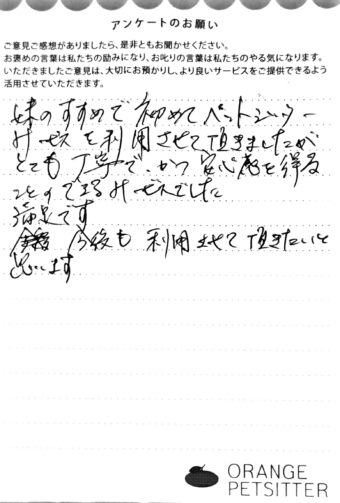 アンケートのお願い
ご意見ご感想がありましたら、是非ともお聞かせください。
お褒めの言葉は私たちの励みになり、お叱りの言葉は私たちのやる気になります。
いただきましたご意見は、大切にお預かりし、より良いサービスをご提供できるよう
活用させていただきます。
妹のすすめで初めてペットシッター
サービスを利用させて頂きましたが
とても丁寧で、かつ安心感を得る
ことのできるサービスでした
満足です
今後も利用させて頂きたいと
思います
ORANGE
PETSITTER